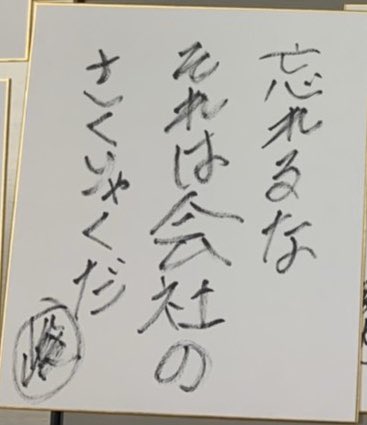 忘れるな
それは会社の
さくりゃくだ